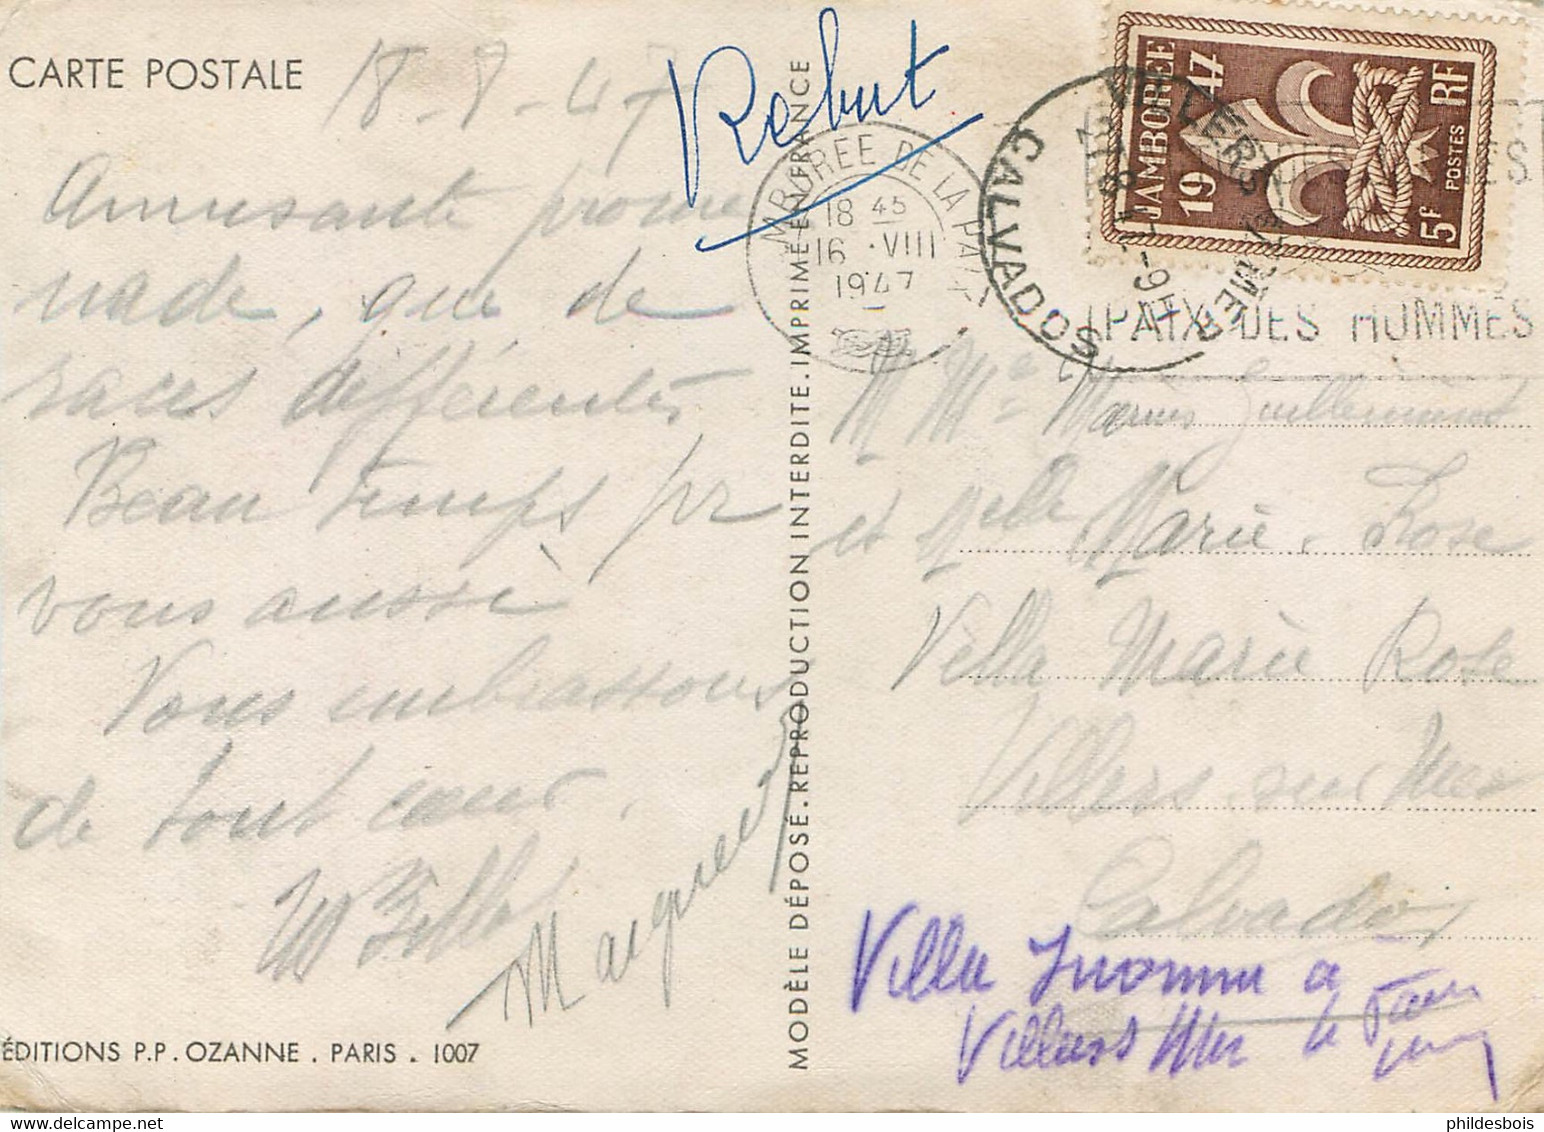 CARTE POSTALE
18-8-47
Amusante prome
nade, que de
races différentes
Beau temps pr
vous aussi
Vous embrassons
de tout cœur.
ÉDITIONS P.P. OZANNE . PARIS . 1007
MODÈLE DÉPOSÉ.REPRODUCTION INTERDITE.IMPRIMÉ EN FRANCE
Rebut
JAMBOREE
1947
5F POSTES RF
MBOREE DE LA PAIX
18 45
16 · VIII
1947
VILLERS S MER
21-8
CALVADOS
PAIX DES HOMMES
M Me Marius Guillerminot
et Melle Marie. Rose
Villa Marie Rose
Villers sur Mer
Calvados
Villa Inconnu a
Villers Mer le
phildesbois - www.delcampe.net